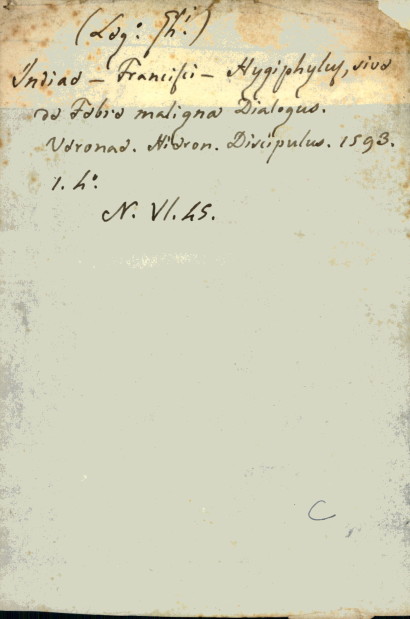 (Leg:º Sh:i)
Indiae – Francisci – Hygiphylus, sive
de Febre maligna Dialogus.
Veronae. Hieron. Discipulus. 1593.
1. 4º.
N. VI. 45.
C